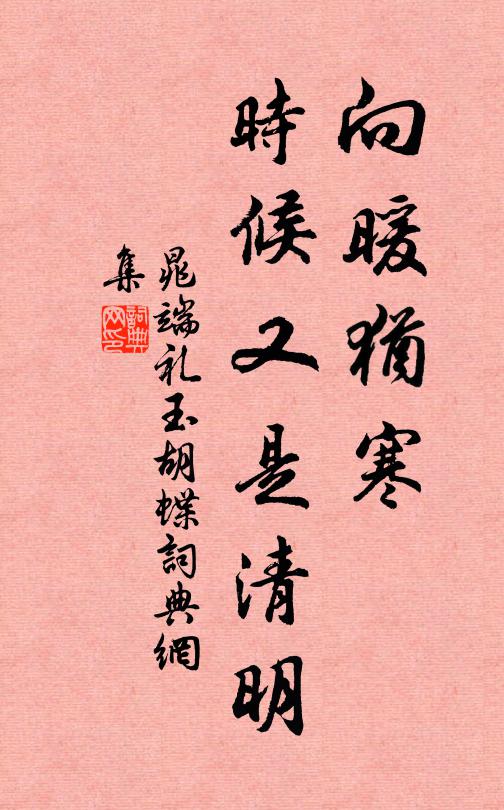 向暖猶寒
時候又是清明
晁端礼玉胡蝶詞典網
集
詞典
网印